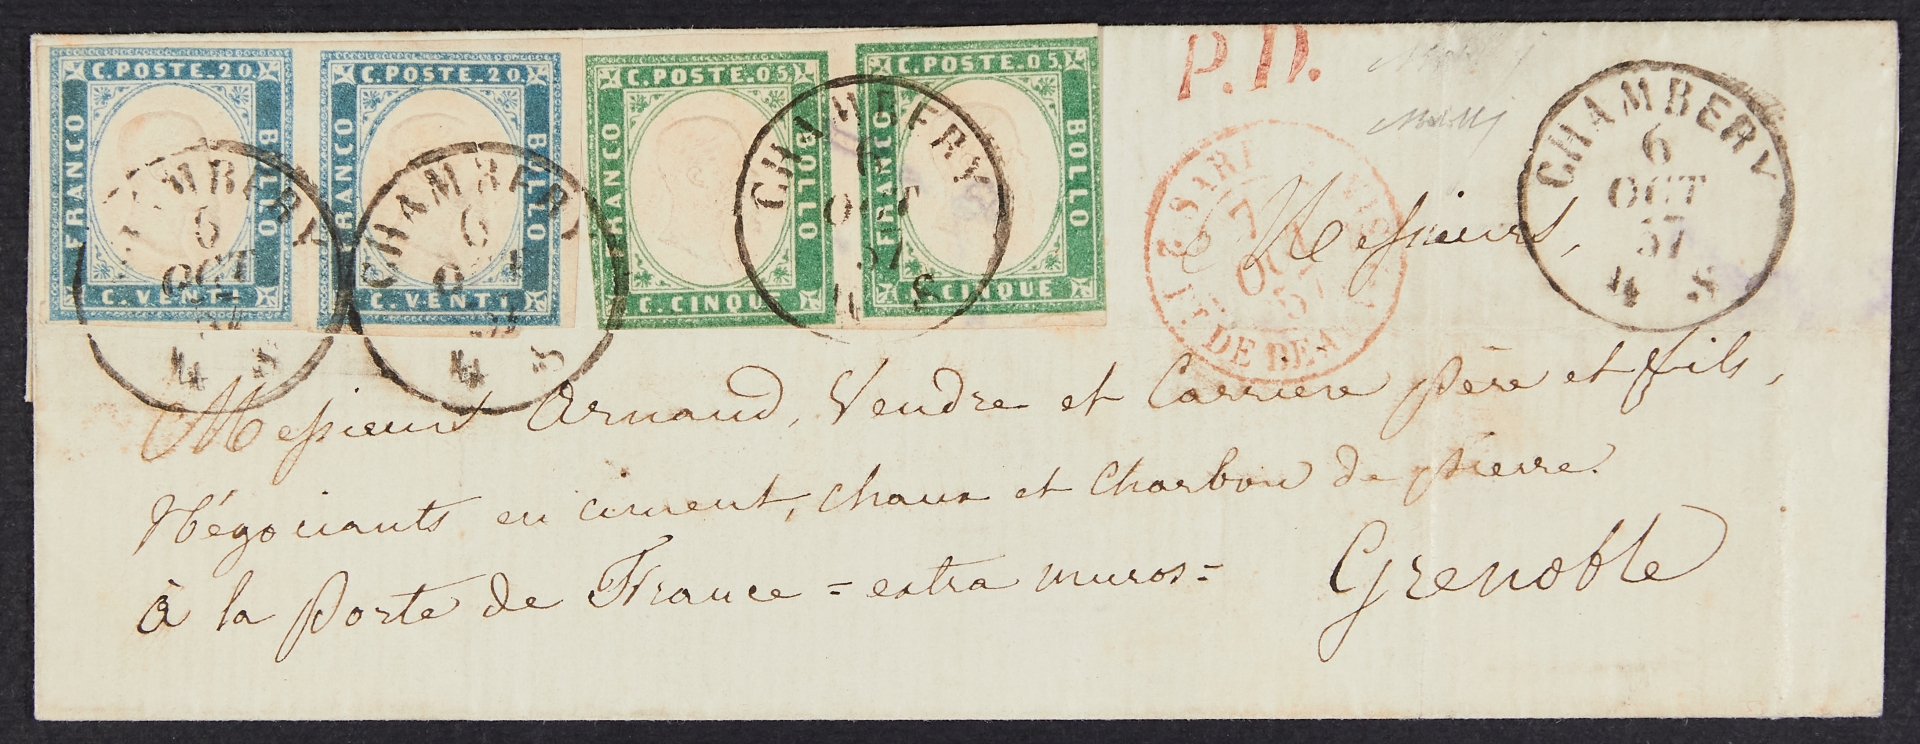 C. POSTE. 20.
FRANCO
BOLLO
C. VENTI
C. POSTE. 20.
FRANCO
BOLLO
C. VENTI
C. POSTE. 05.
FRANCO
BOLLO
C. CINQUE
C. POSTE. 05.
FRANCO
BOLLO
C. CINQUE
CHAMBERY
6
OCT
57
4 S
CHAMBERY
6
OCT
57
4 S
CHAMBERY
6
OCT
57
4 S
P.D.
CHAMBERY
6
OCT
57
4 S
SARD
7
OCT
57
DE BEA
Messieurs,
Messieurs Arnaud, Vendre et Carriere père et fils,
Négociants en ciment, chaux et charbon de pierre.
à la porte de France = extra muros =
Grenoble